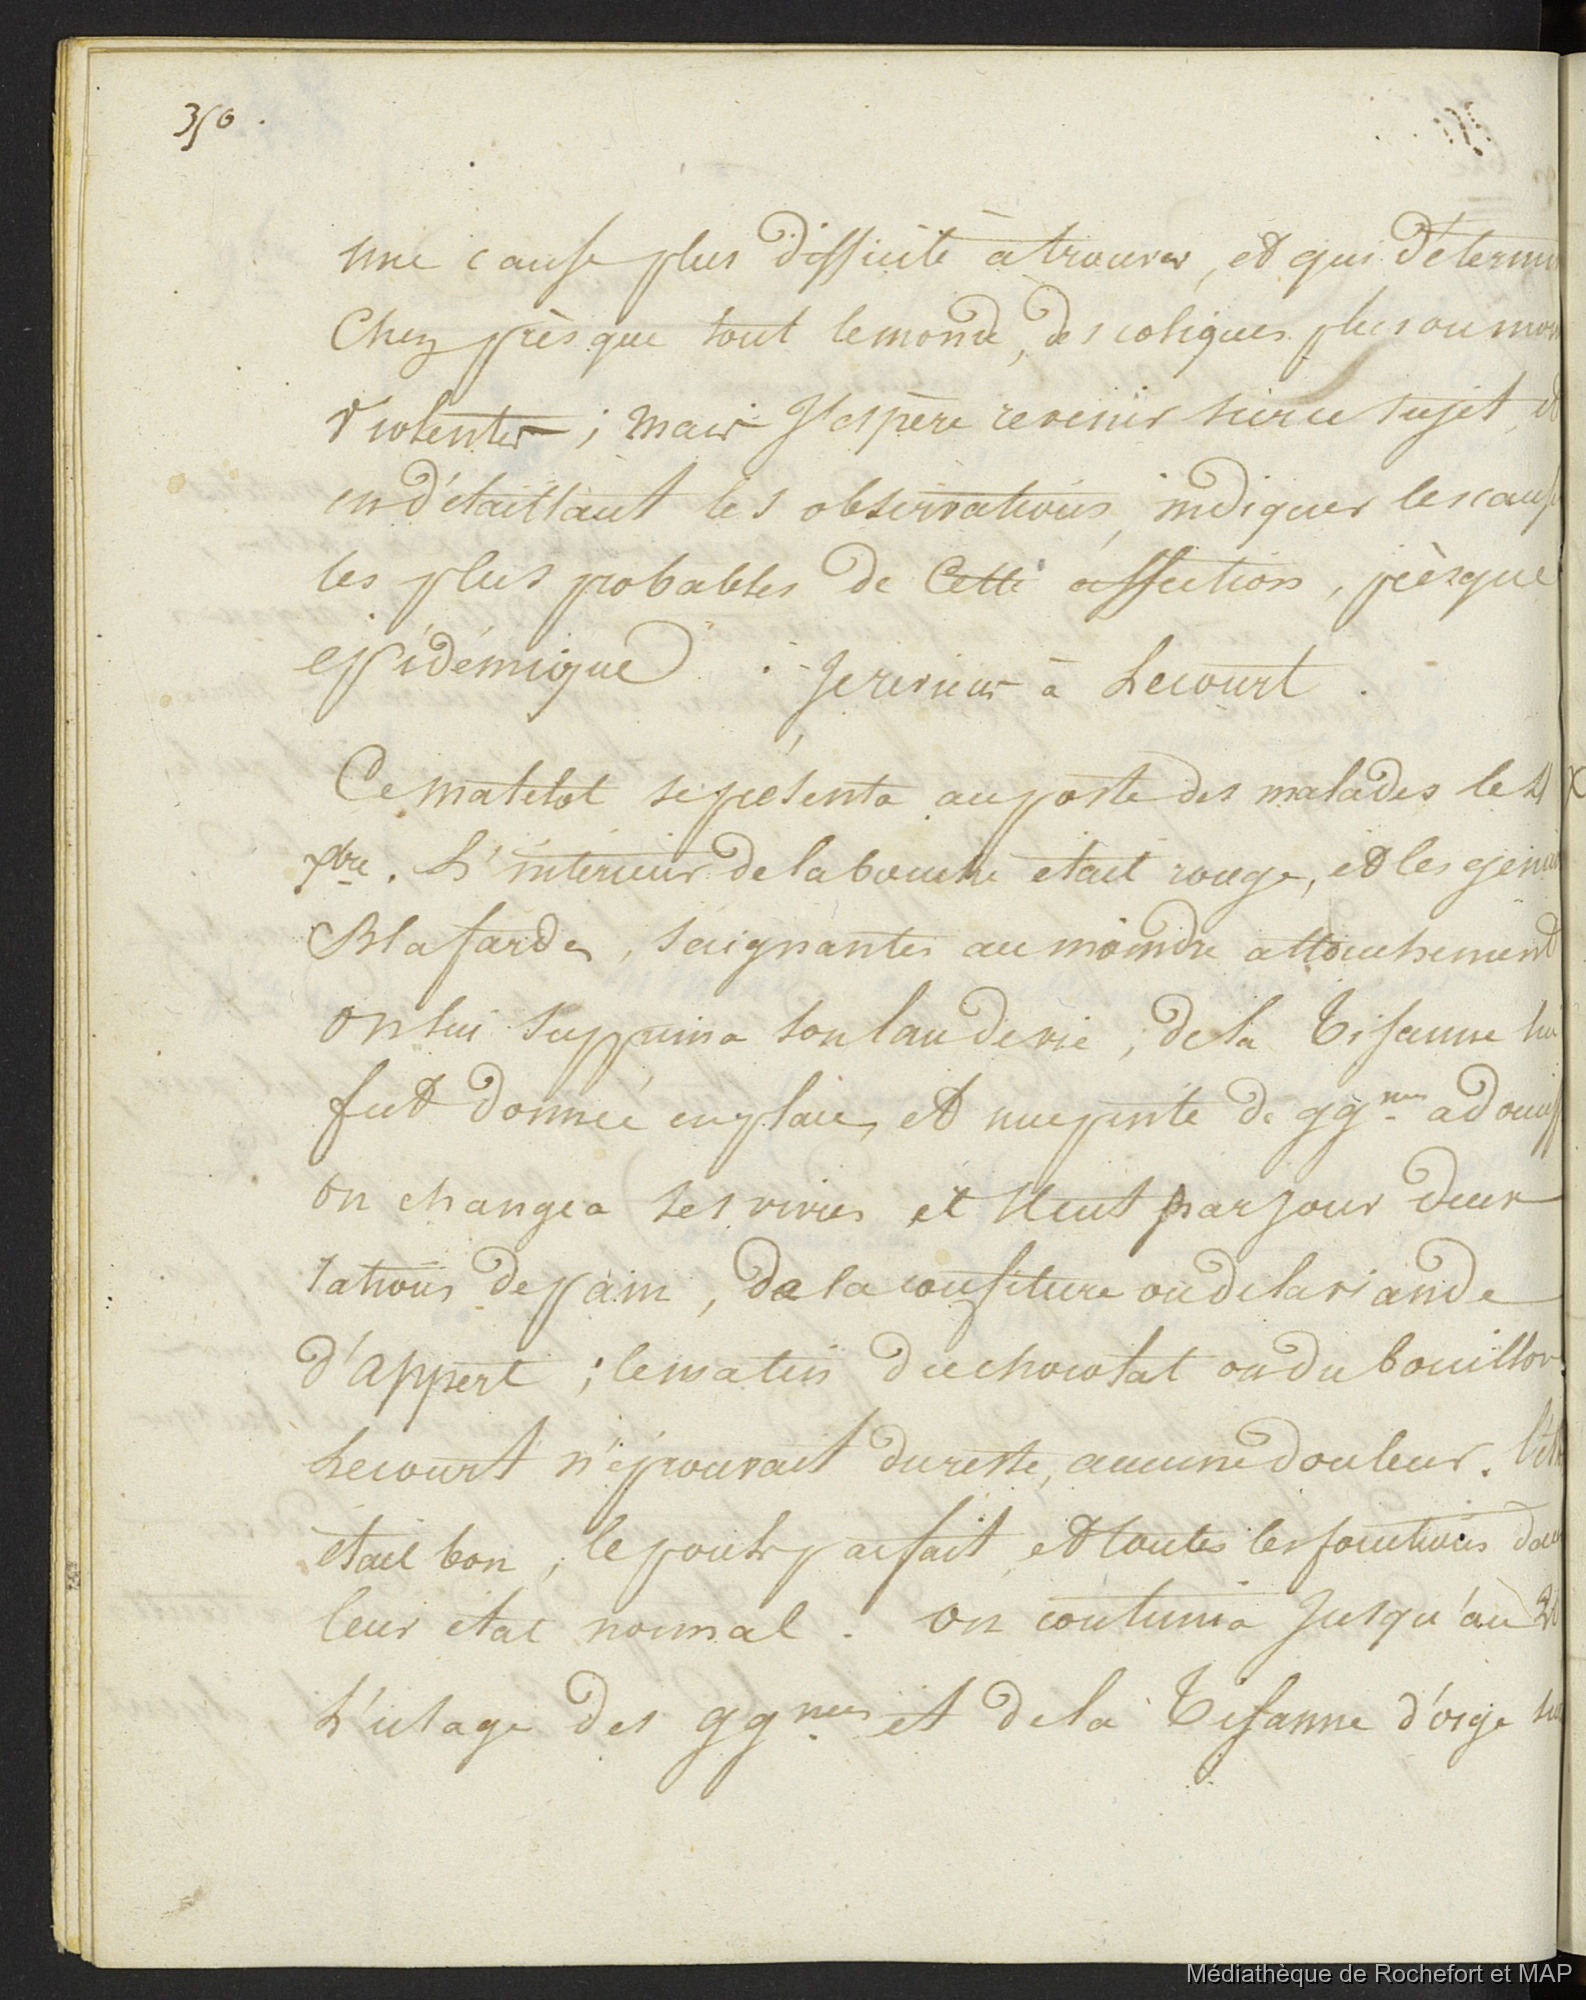 350.
une cause plus difficile à trouver, et qui determi
Chez près que tout le monde, des coliques plus ou moin
violentes ; mais J'espère revenir sur ce sujet, et
en détaillant les observations, indiquer les caus
les plus probables de Cette affection, présque
épidémique. - Je reviens à Lecourt.
Ce matelot se présenta au poste des malades le 21
Xbre. L'intérieur de la bouche était rouge, et les genci
Blafardes, saignantes au moindre attouchement
on lui supprima son eau de vie, de la Tisanne lui
fut donnée en place, et une pinte de gg.mes adouciss
on changea ses vivres et Il eut par jour deux
rations de pain, de la confiture ou de la viande
d'appert ; le matin du chocolat ou du bouillon.
Lecourt n'éprouvait du reste, aucune douleur.
était bon, le pouls parfait, et toutes les fonctions dans
leur état normal. On continua Jusqu'au
L'usage des gg.mes et de la Tisanne d'orge
Médiathèque de Rochefort et MAP